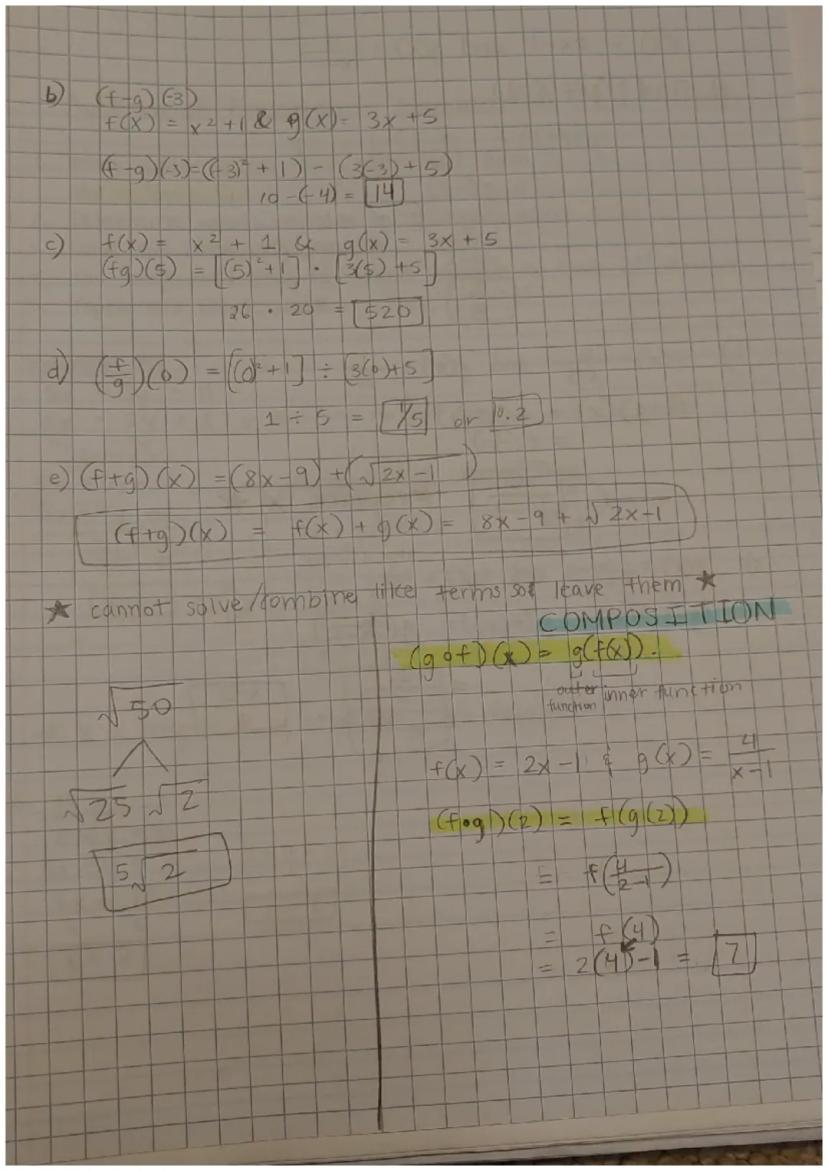 b) (f-g)(-3)
f(x) = x² + 1 & g(x) = 3x + 5
(f-g)(-3) = ((-3)² + 1) - (3(-3) + 5)
10 - (-4) = 14
c) f(x) = x² + 1 & g(x) = 3x + 5
(fg)(5) = [(5)² + 1] · [3(5) + 5]
26 · 20 = 520
d) (f/g)(0) = [(0)² + 1] ÷ [3(0) + 5]
1 ÷ 5 = 1/5 or 0.2
e) (f+g)(x) = (8x - 9) + (√2x - 1)
(f+g)(x) = f(x) + g(x) = 8x - 9 + √2x-1
★ cannot solve/combine like terms so leave them ★
√50
√25 √2
5√2
COMPOSITION
(g o f)(x) = g(f(x)).
outer function inner function
f(x) = 2x - 1 & g(x) = 4/x-1
(f o g)(2) = f(g(2))
= f(4/2-1)
= f(4)
= 2(4) - 1 = 7